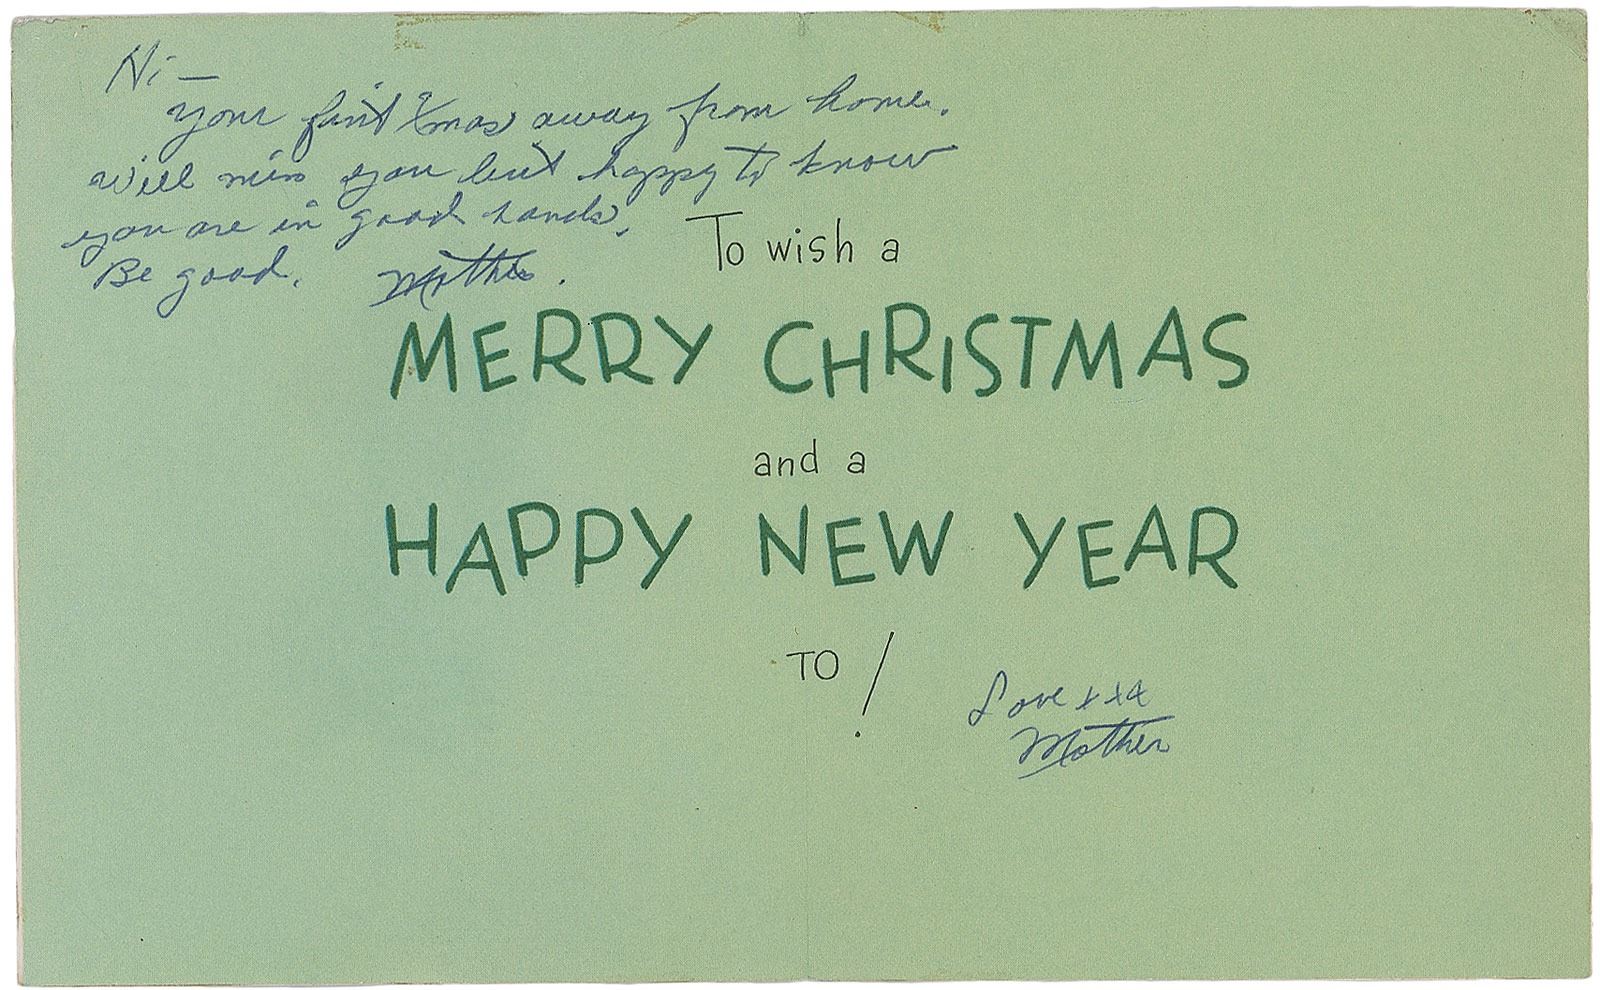 Hi —
your first Xmas away from home.
will miss you but happy to know
you are in good hands.
Be good. Mother.
To wish a
MERRY CHRISTMAS
and a
HAPPY NEW YEAR
TO !
Love xxx
Mother